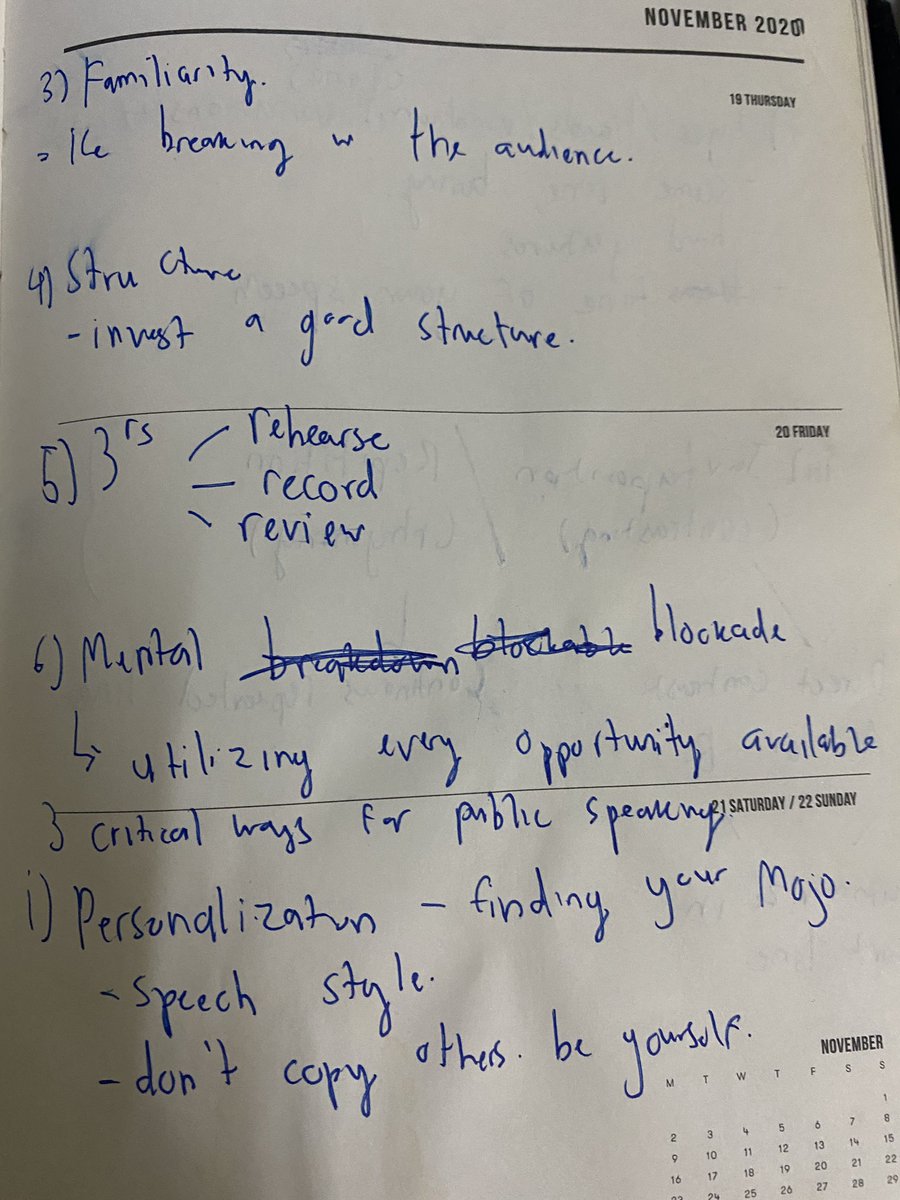 NOVEMBER 2020
19 THURSDAY
3) Familiarity.
- Ice breaking w the audience.
4) Structure
- invest a good structure.
20 FRIDAY
5) 3 rs
rehearse
- record
review
6) Mental breakdown blockable blockade
↳ utilizing every opportunity available
21 SATURDAY / 22 SUNDAY
3 critical ways for public speaking.
i) Personalization - finding your Mojo.
- speech style.
- don't copy others. be yourself.
NOVEMBER
M T W T F S S
1
2 3 4 5 6 7 8
9 10 11 12 13 14 15
16 17 18 19 20 21 22
23 24 25 26 27 28 29